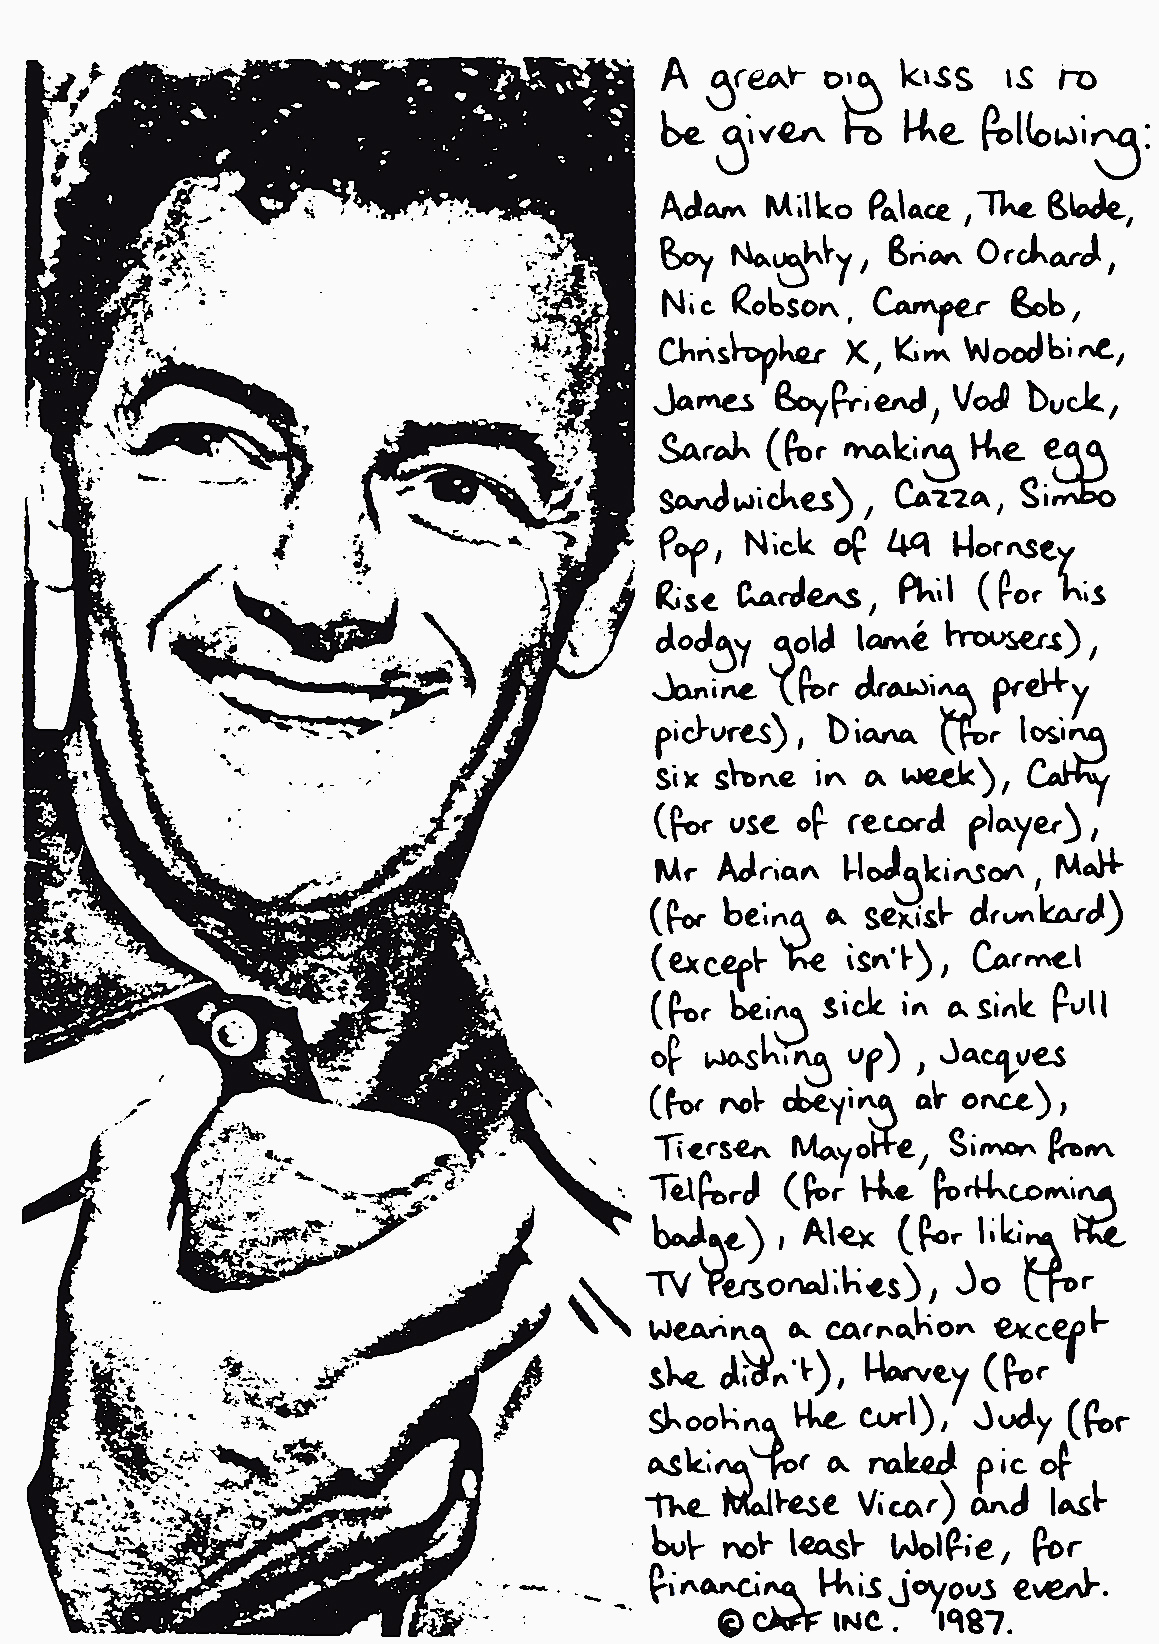 A great big kiss is to
be given to the following:
Adam Milko Palace, The Blade,
Boy Naughty, Brian Orchard,
Nic Robson, Camper Bob,
Christopher X, Kim Woodbine,
James Boyfriend, Vod Duck,
Sarah (for making the egg
sandwiches), Cazza, Simbo
Pop, Nick of 49 Hornsey
Rise Gardens, Phil (for his
dodgy gold lamé trousers),
Janine (for drawing pretty
pictures), Diana (for losing
six stone in a week), Cathy
(for use of record player),
Mr Adrian Hodgkinson, Matt
(for being a sexist drunkard)
(except he isn't), Carmel
(for being sick in a sink full
of washing up), Jacques
(for not obeying at once),
Tiersen Mayotte, Simon from
Telford (for the forthcoming
badge), Alex (for liking the
TV Personalities), Jo (for
wearing a carnation except
she didn't), Harvey (for
shooting the curl), Judy (for
asking for a naked pic of
The Maltese Vicar) and last
but not least Wolfie, for
financing this joyous event.
© CAFF INC. 1987.